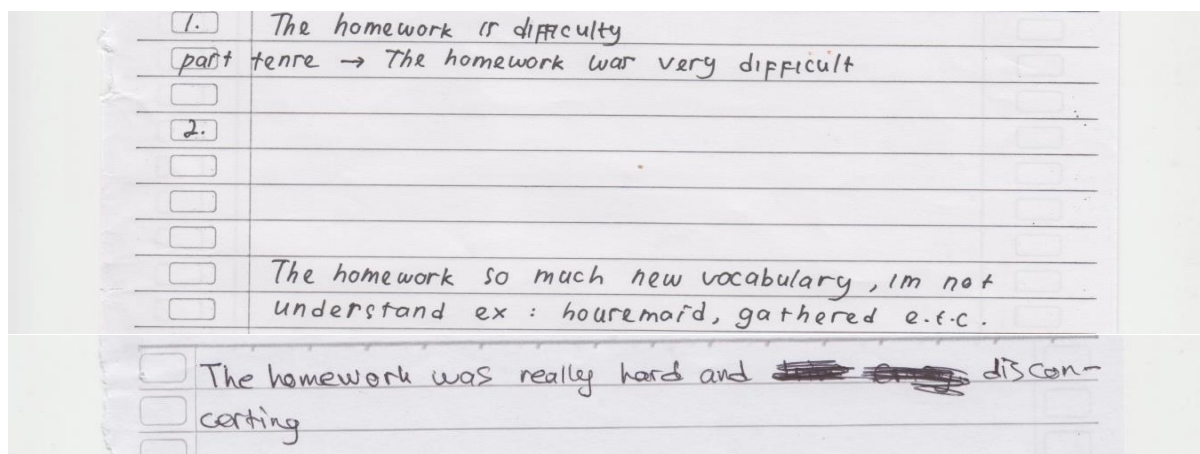 1. The homework is difficulty
past tense → The homework was very difficult
2.
The homework so much new vocabulary, im not
understand ex : housemaid, gathered e.t.c.
The homework was really hard and discon-
certing